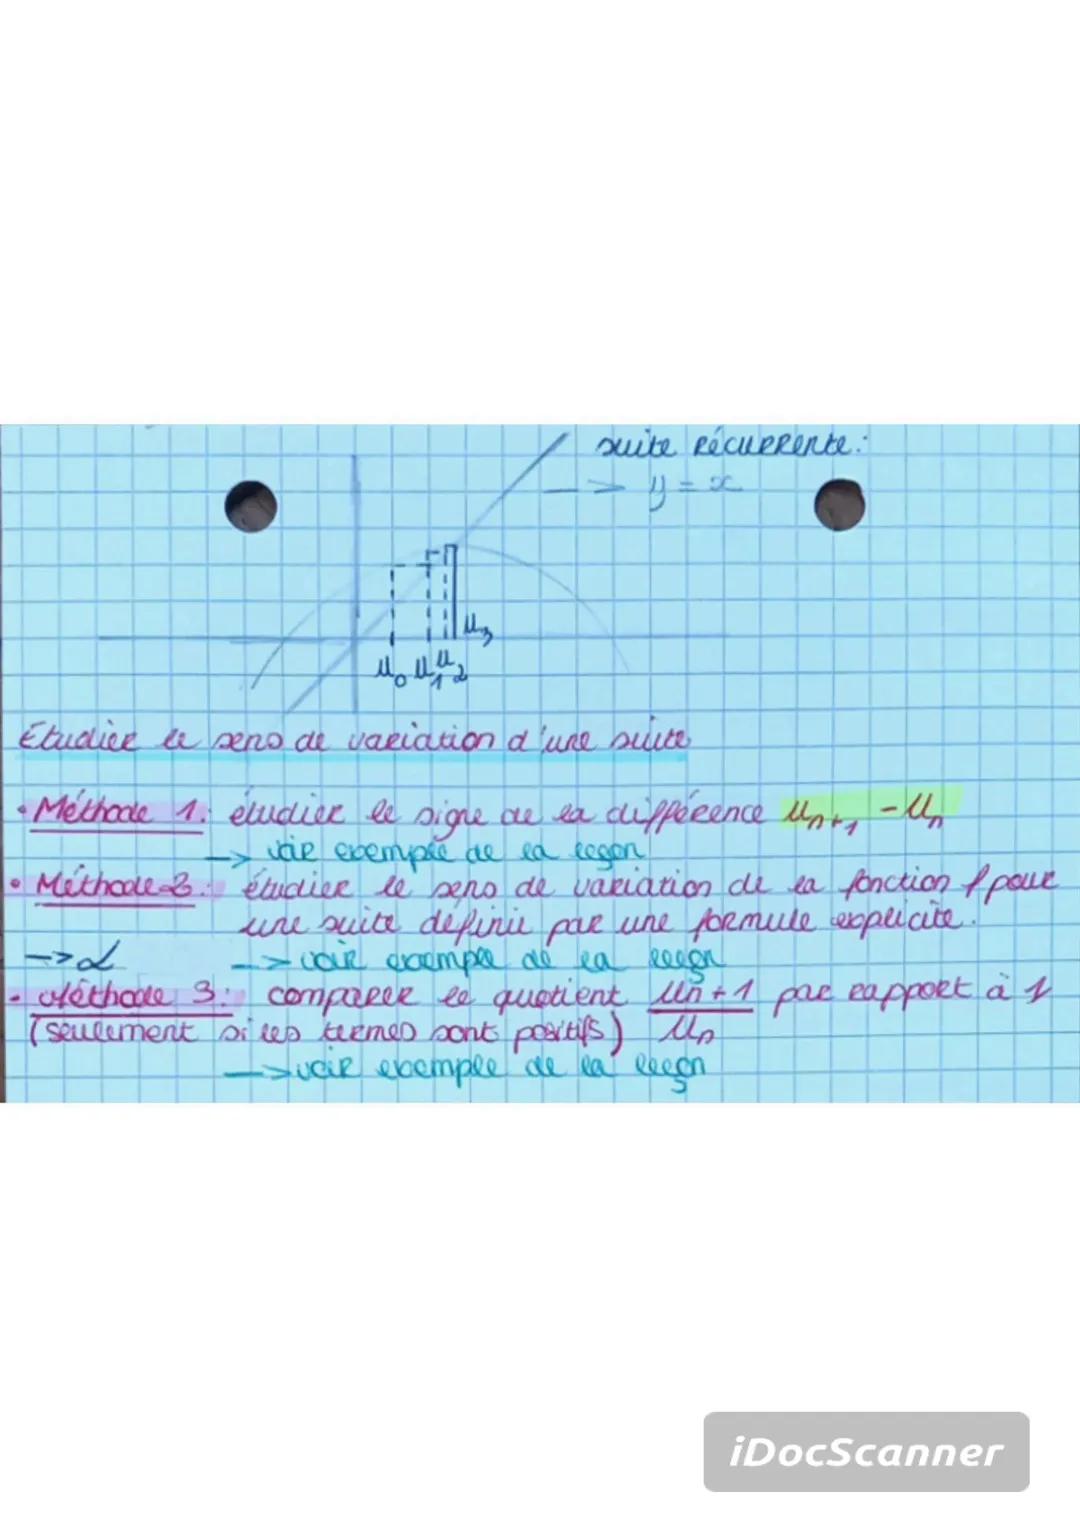 suite récurrente:
--> y = x
u₃
u₀ u₁ u₂
Étudier le sens de variation d'une suite
• Méthode 1: étudier le signe de la différence uₙ₊₁ - uₙ
-> voir exemple de la leçon
• Méthode 2: étudier le sens de variation de la fonction f pour
une suite définie par une formule explicite.
-> α -> voir exemple de la leçon
• Méthode 3: comparer le quotient uₙ₊₁/uₙ par rapport à 1
(seulement si les termes sont positifs)
-> voir exemple de la leçon
iDocScanner